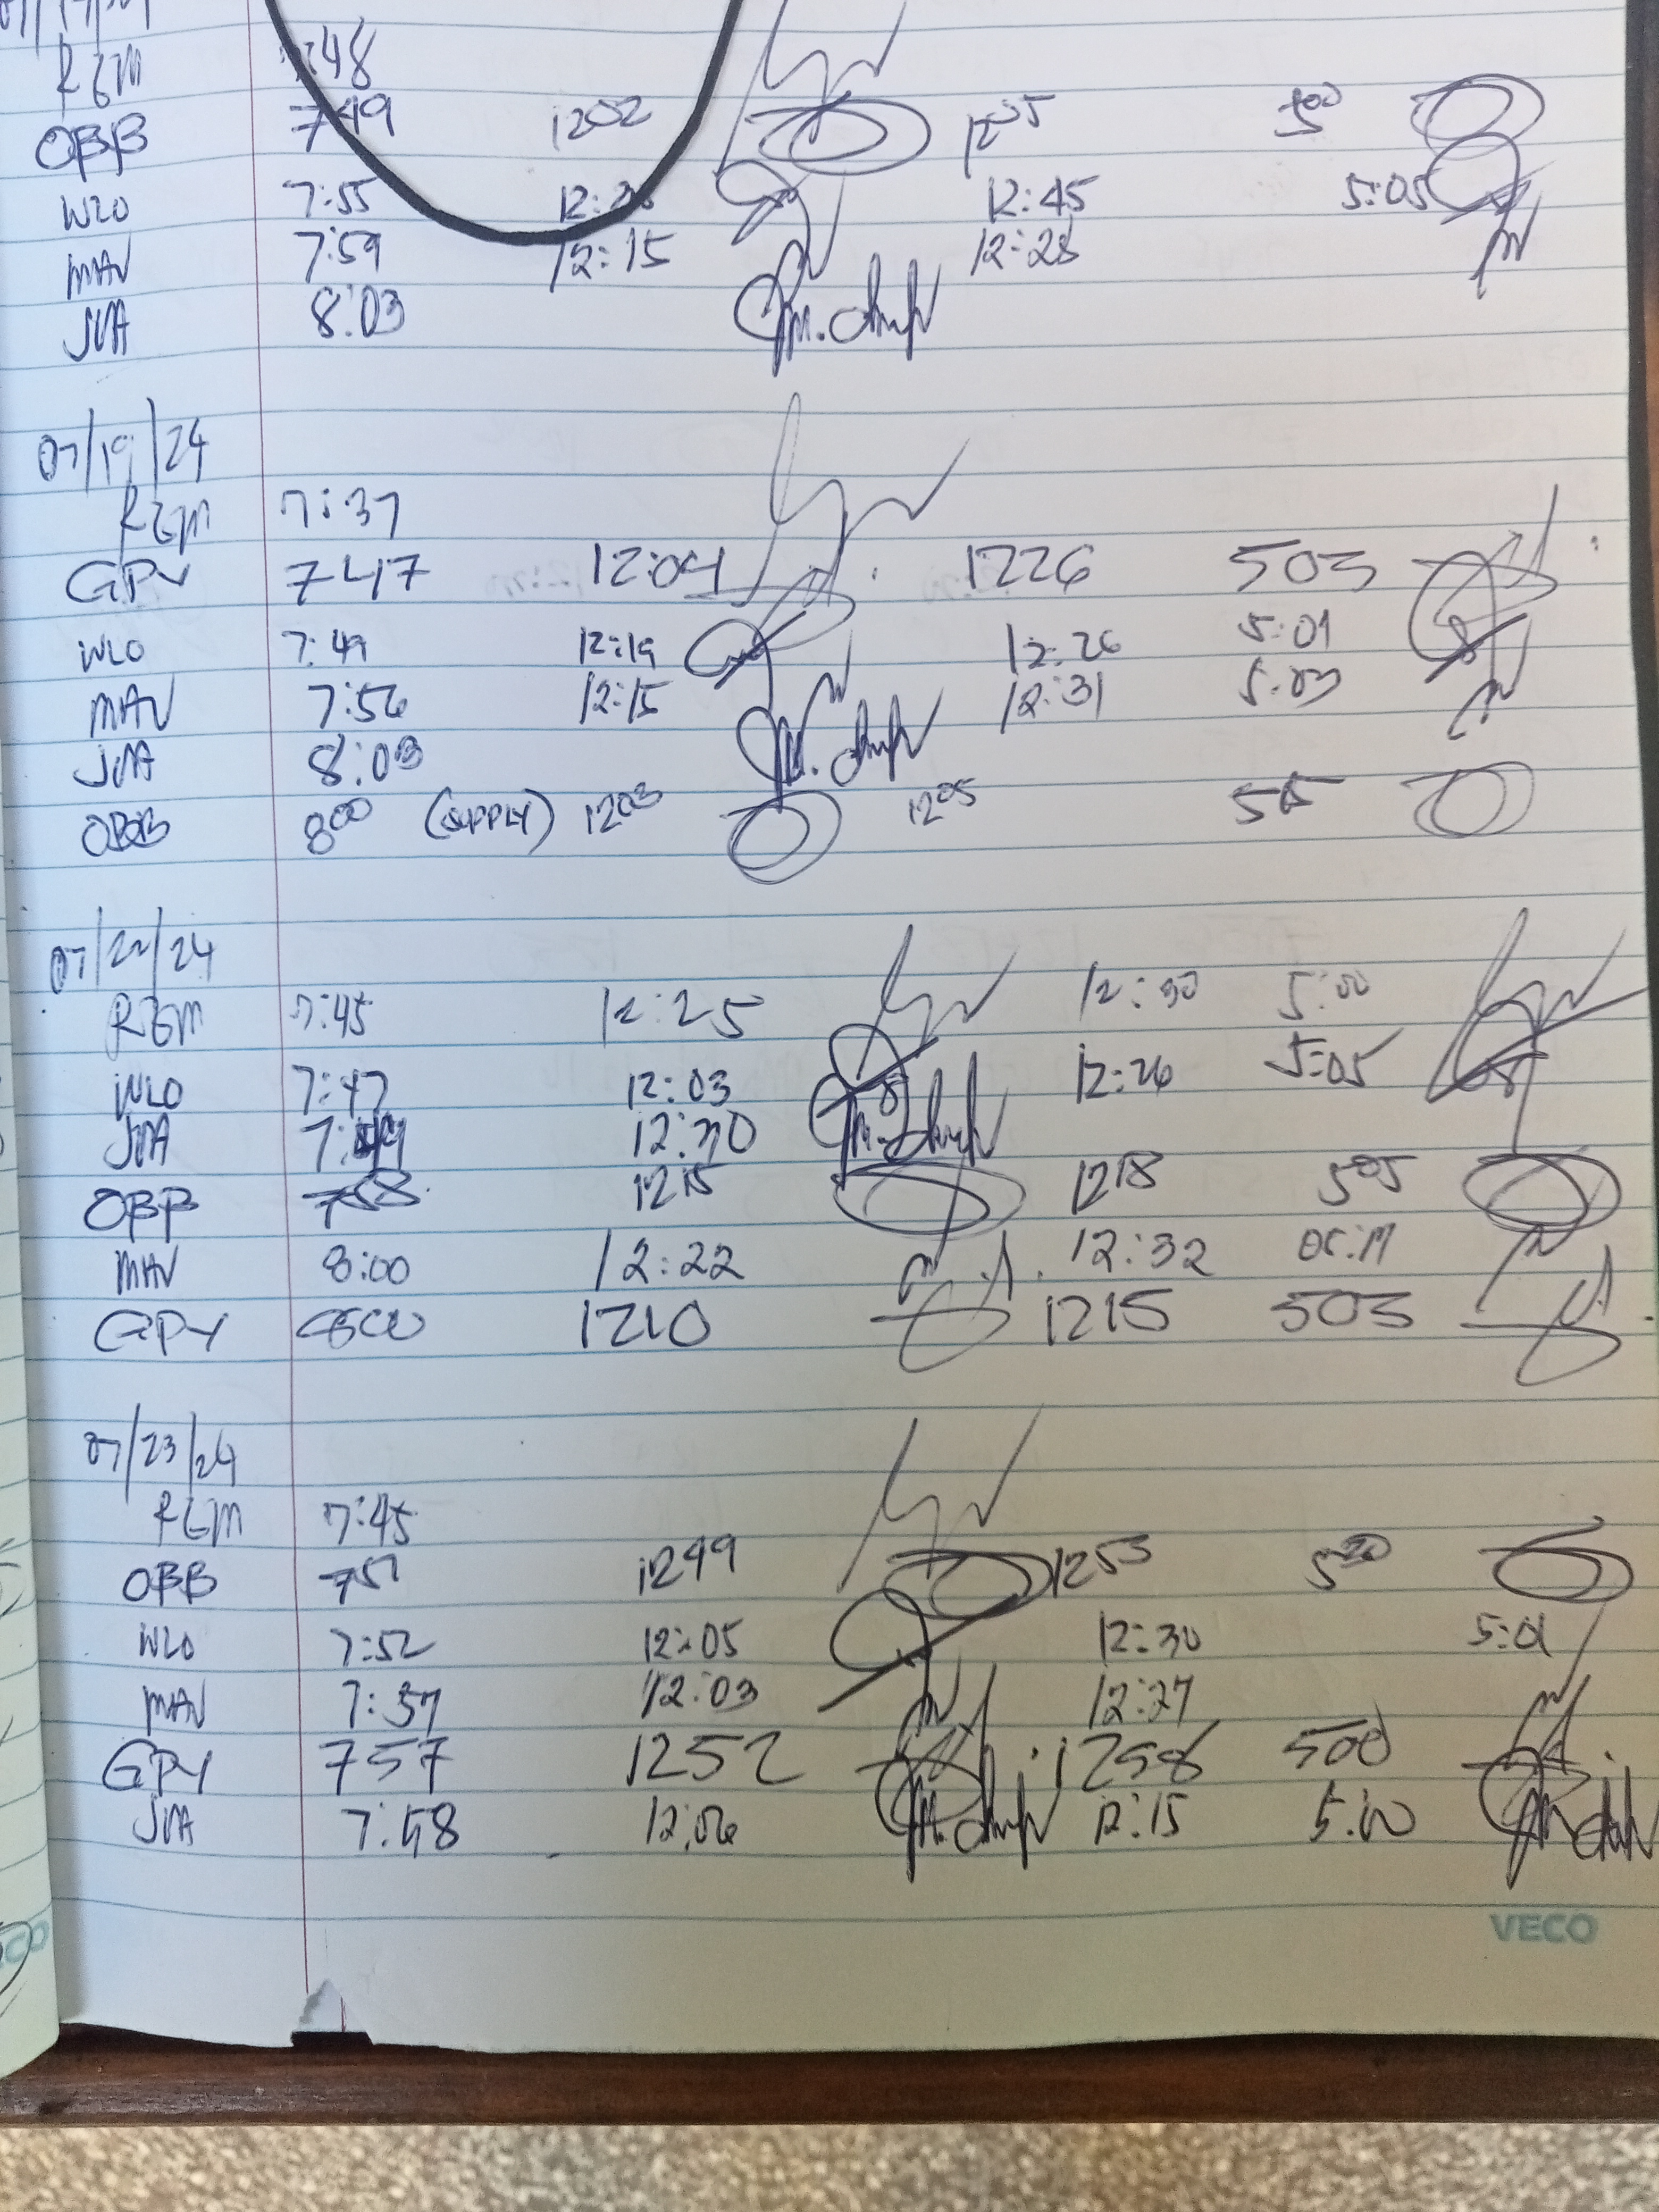 RGM :48
OBB 749 1202 1205 500
WLO 7:55 12: 12:45 5:05
MAV 7:59 12:15 12:28
JVA 8:03
07/19/24
RGM 7:37
GPY 747 12:04 1226 503
WLO 7:49 12:19 12:26 5:01
MAV 7:56 12:15 12:31 5:03
JVA 8:03
OBB 800 (SUPPLY) 1203 1205 505
07/22/24
RGM 7:45 12:25 12:30 5:00
WLO 7:47 12:03 12:26 5:05
JVA 12:30
OBB 758 1215 1218 505
MAV 8:00 12:22 12:32
GPY 1210 1215 503
07/23/24
RGM 7:45
OBB 751 1249 1253 520
WLO 7:52 12:05 12:30 5:01
MAV 7:57 12:03 12:27
GPY 757 1252 1258 500
JVA 7:58 12:06 12:15 5:00
VECO